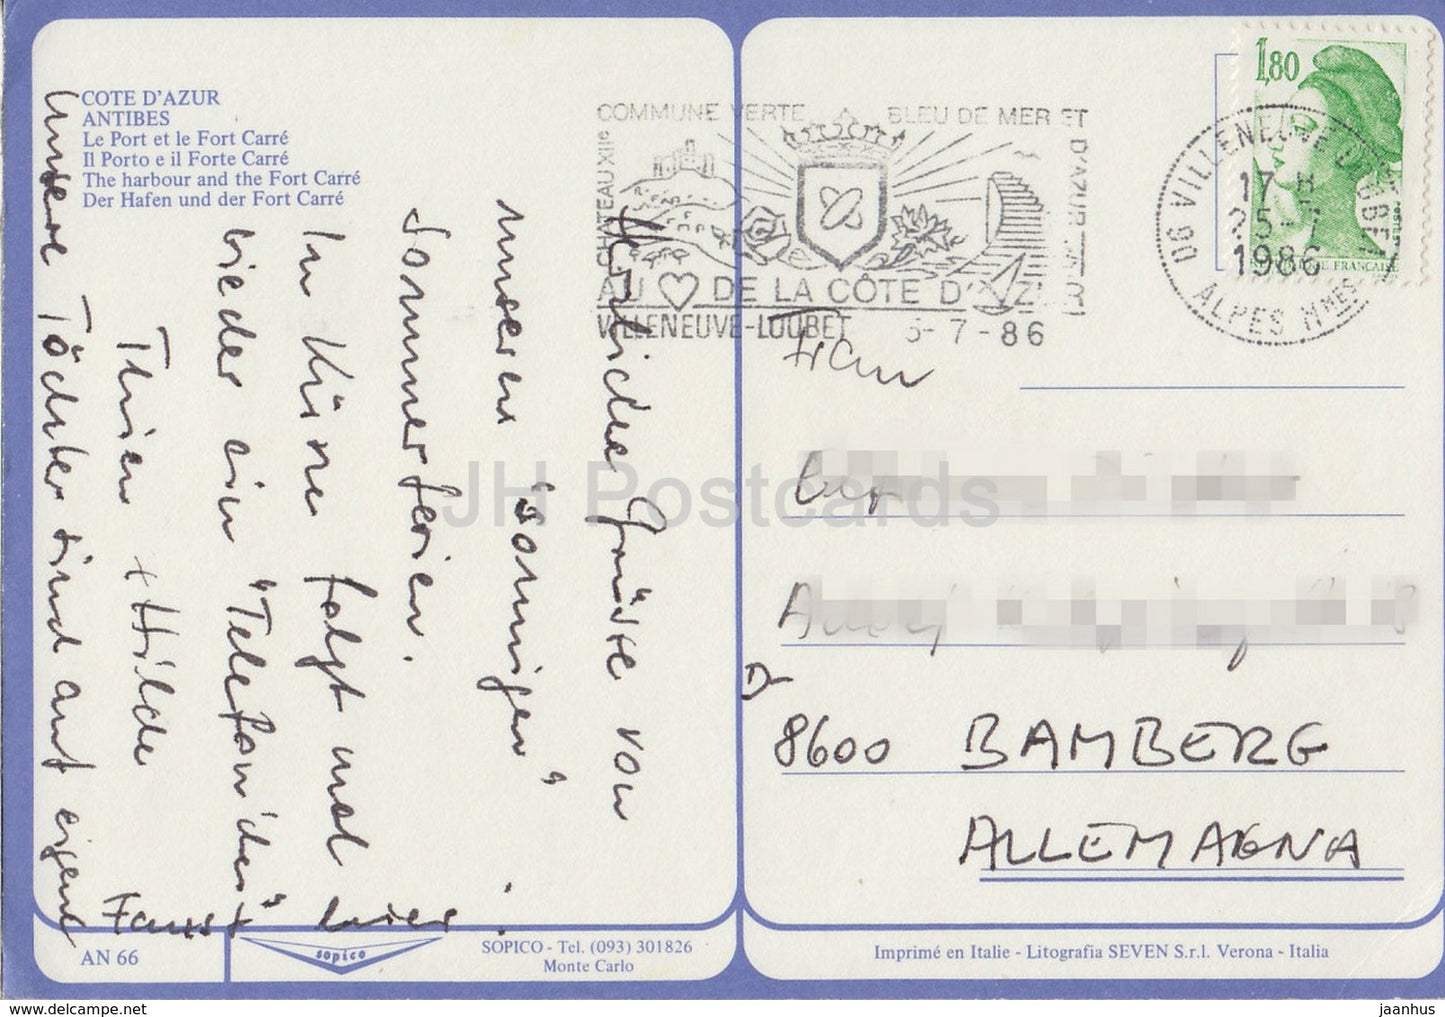 COTE D'AZUR
ANTIBES
Le Port et le Fort Carré
Il Porto e il Forte Carré
The harbour and the Fort Carré
Der Hafen und der Fort Carré
Herzliche Grüße von
unseren "sonnigen"
Sommerferien.
In Küre folgt mal
wieder ein "Telefönchen"
+ Hilde
Unsere Töchter sind auf eigene
Faust hier.
COMMUNE VERTE BLEU DE MER ET D'AZUR
CHATEAU XIIe
AU DE LA CÔTE D'AZUR
VILLENEUVE-LOUBET 5-7-86
1,80
06 VILLENEUVE LOUBET
17 H
25-7
1986
ALPES MMES
Frau
D-
8600 BAMBERG
ALLEMAGNA
JH Postcards
AN 66
sopico
SOPICO - Tel. (093) 301826
Monte Carlo
Imprimé en Italie - Litografia SEVEN S.r.l. Verona - Italia
www.delcampe.net
jaanhus